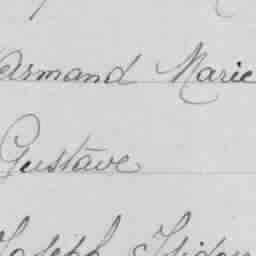 Armand Marie
Gustave
Joseph Isidore